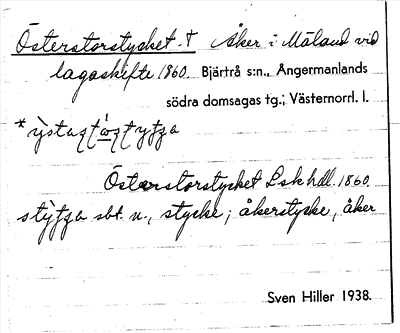 Österstorstycket. † Åker i Måland vid
lagaskifte 1860. Bjärtrå s:n., Ångermanlands
södra domsagas tg.; Västernorrl. l.
Österstorstycket Lskhdl. 1860.
sbt. n., stycke; åkerstycke, åker
Sven Hiller 1938.